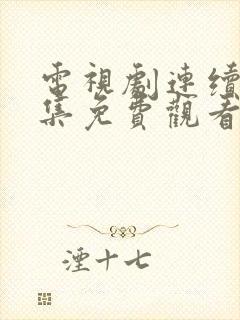 電視劇連續
集免費觀看
湮十七